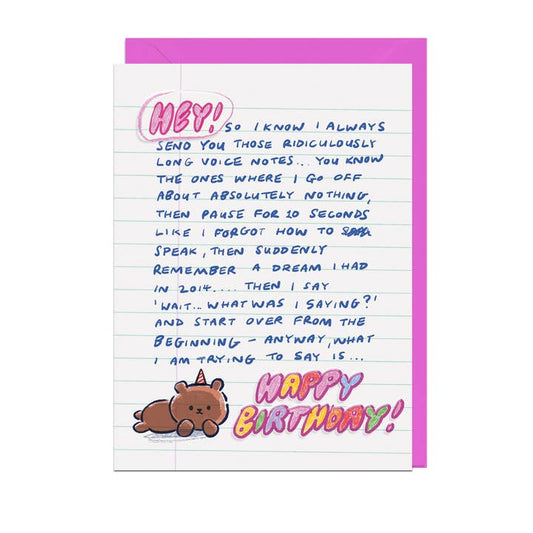 HEY! SO I KNOW I ALWAYS
SEND YOU THOSE RIDICULOUSLY
LONG VOICE NOTES... YOU KNOW
THE ONES WHERE I GO OFF
ABOUT ABSOLUTELY NOTHING,
THEN PAUSE FOR 20 SECONDS
LIKE I FORGOT HOW TO
SPEAK, THEN SUDDENLY
REMEMBER A DREAM I HAD
IN 2014.... THEN I SAY
'WAIT... WHAT WAS I SAYING?'
AND START OVER FROM THE
BEGINNING - ANYWAY, WHAT
I AM TRYING TO SAY IS...
HAPPY
BIRTHDAY!